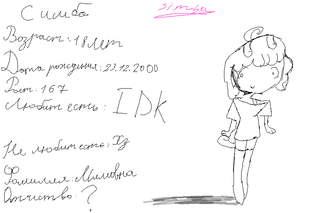 Симба
simba
Возраст: 18 лет
Дата рождения: 23.12.2000
Рост: 167
Любит есть: IDK
Не любит есть: Хз
Фамилия:
Отчиство: ?